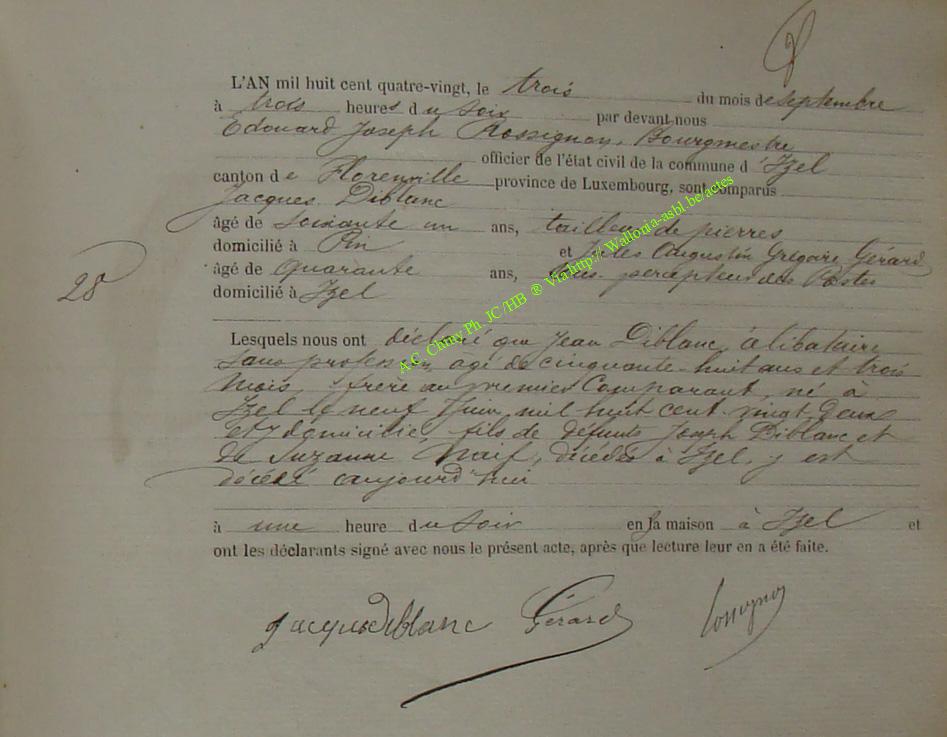 L'AN mil huit cent quatre-vingt, le trois du mois de septembre
à trois heures du soir par devant nous
Edouard Joseph Rossignon, Bourgmestre
officier de l'état civil de la commune d'Izel
canton de Florenville province de Luxembourg, sont comparus
Jacques Diblanc
âgé de soixante un ans, tailleur de pierres
domicilié à Pin et Jules Augustin Grégoire Gérard
28
âgé de quarante ans, percepteur des Postes
domicilié à Izel
Lesquels nous ont déclaré que Jean Diblanc, célibataire
sans profession, âgé de cinquante-huit ans et trois
mois, frère au premier Comparant, né à
Izel le neuf Juin mil huit cent vingt deux
et y domicilié, fils de défunts Joseph Diblanc et
de Suzanne Naif, décédés à Izel, y est
décédé aujourd'hui
à une heure du soir en sa maison à Izel et
ont les déclarants signé avec nous le présent acte, après que lecture leur en a été faite.
Jacques diblanc Gérard Rossignon
A.C. Chiny Ph. JC/HB ® Via http:// Wallonia-asbl.be/actes